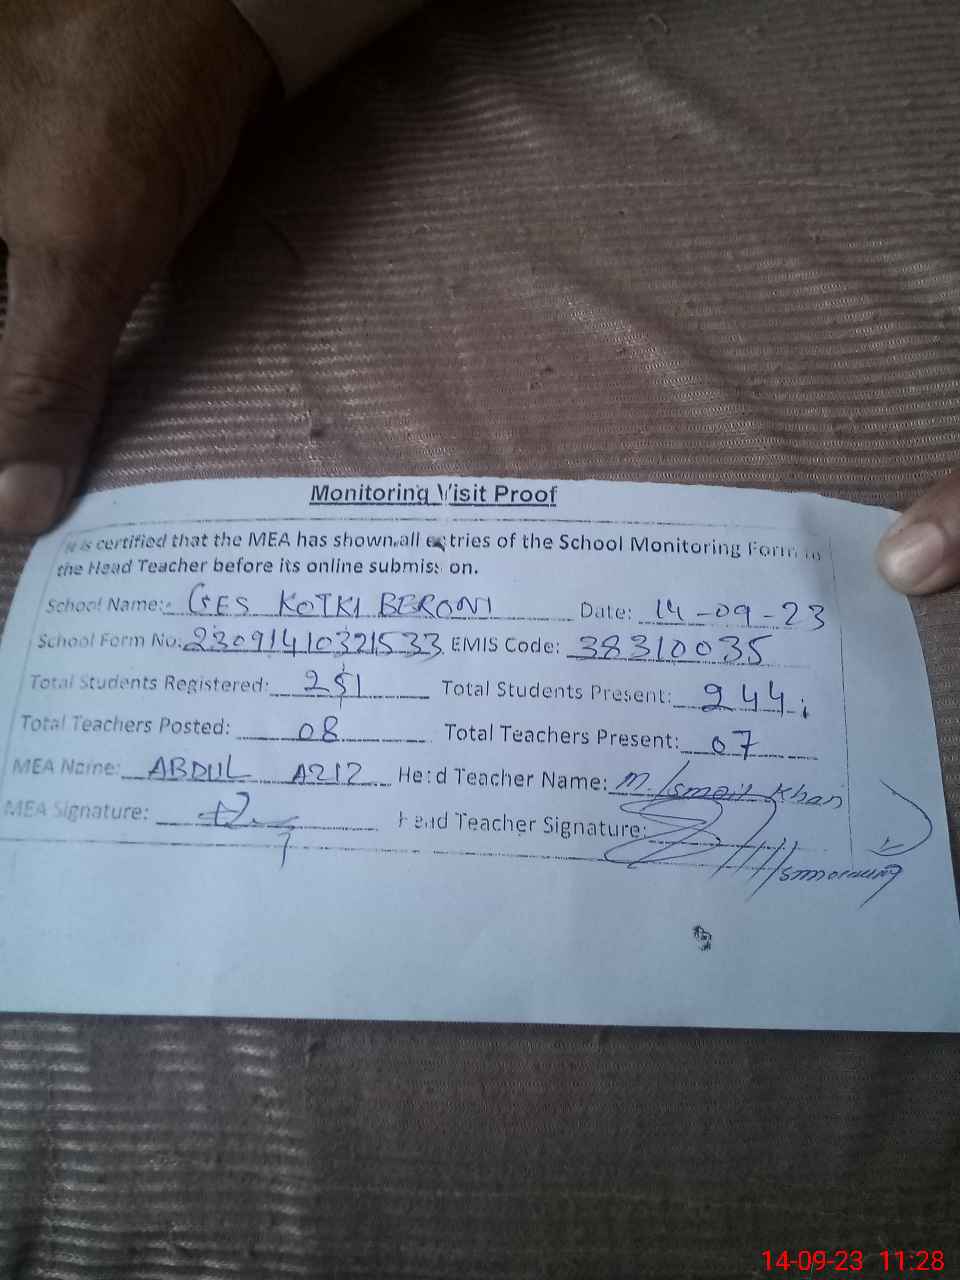 Monitoring Visit Proof
It is certified that the MEA has shown all entries of the School Monitoring Form to
the Head Teacher before its online submission.
School Name: GES KOTKI BERONI Date: 14-09-23
School Form No: 23091410321533 EMIS Code: 38310035
Total Students Registered: 251 Total Students Present: 244
Total Teachers Posted: 08 Total Teachers Present: 07
MEA Name: ABDUL AZIZ Head Teacher Name: M. Ismail Khan
MEA Signature: Head Teacher Signature:
14-09-23 11:28